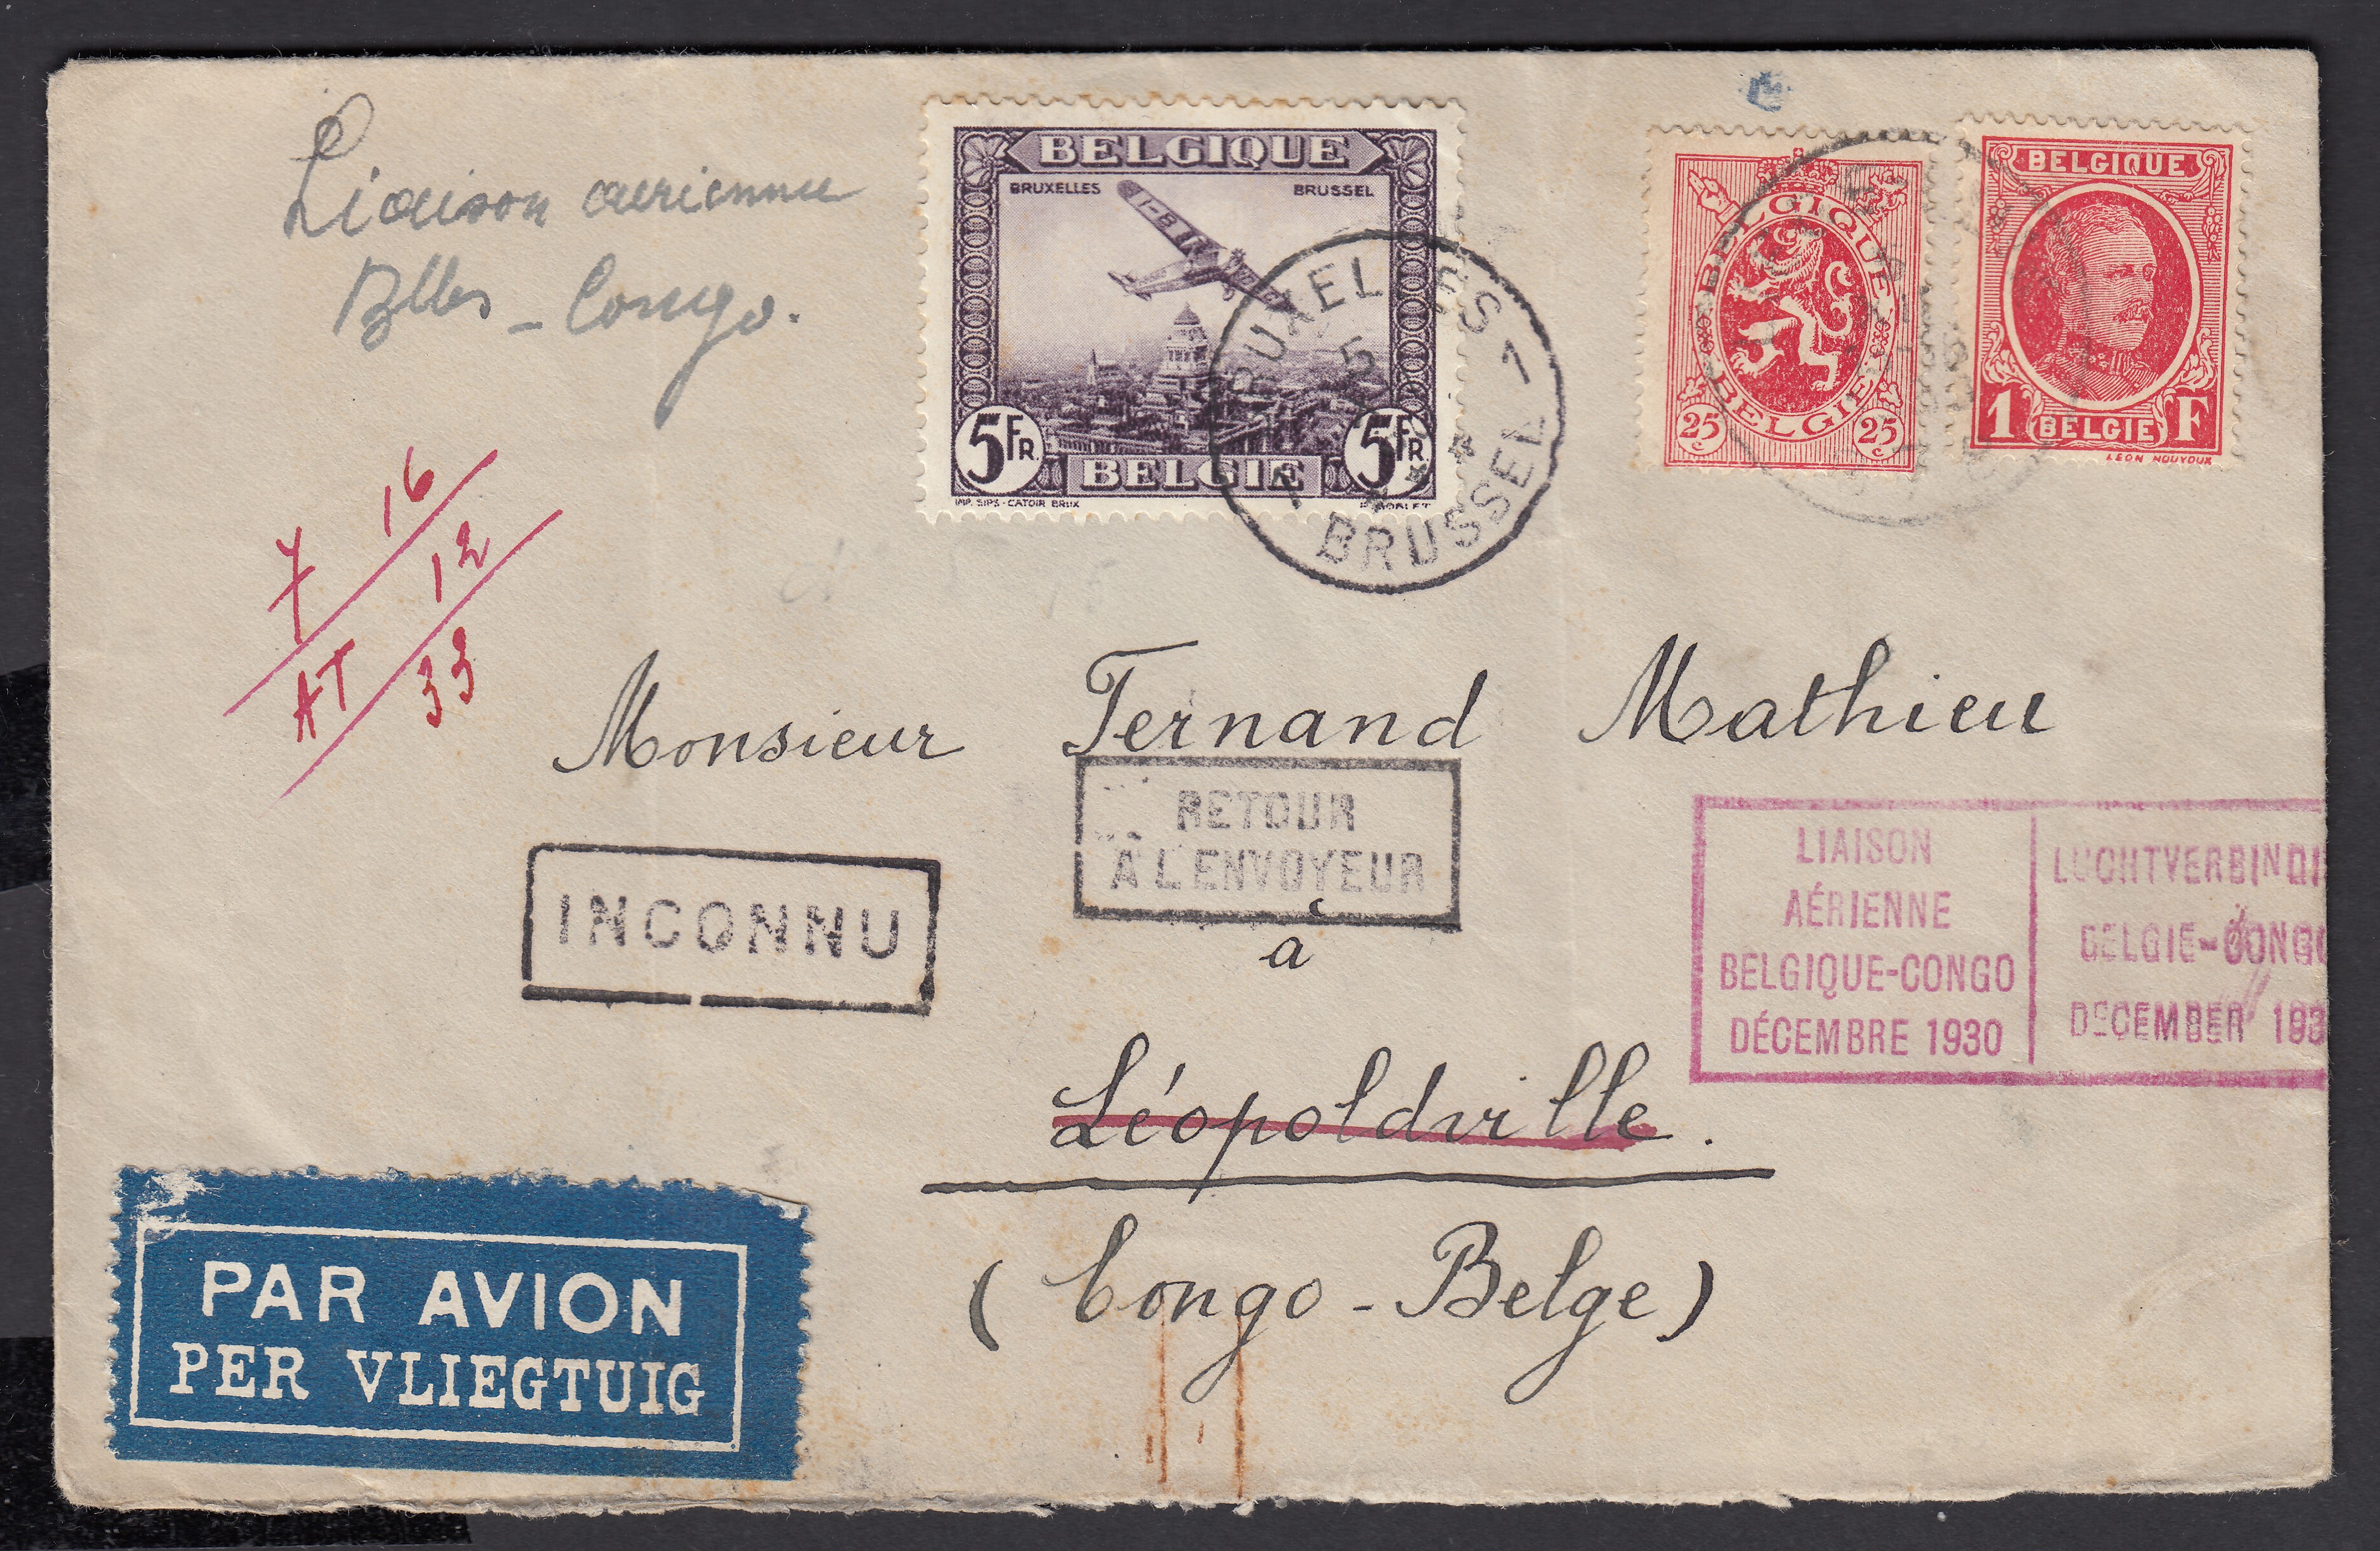 Liaison aerienne
Blles - Congo.
BELGIQUE
BRUXELLES BRUSSEL
5 FR. 5 FR.
BELGIE
IMP. SIPS - CATOIR BRUX
BRUXELLES 7
5
BRUSSEL
BELGIQUE
BELGIE
25 c 25 c
BELGIQUE
1 BELGIE F
LEON NOUYOUX
7 16
AT 12
33
Monsieur Fernand Mathieu
RETOUR
A L'ENVOYEUR
INCONNU
à
Léopoldville.
(Congo - Belge)
LIAISON
AÉRIENNE
BELGIQUE-CONGO
DÉCEMBRE 1930
LUCHTVERBINDI
BELGIE-CONGO
DECEMBER 193
PAR AVION
PER VLIEGTUIG